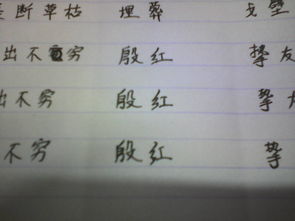 断草枯 埋葬 戈壁
出不穷 殷红 挚友
出不穷 殷红 挚友
不穷 殷红 挚